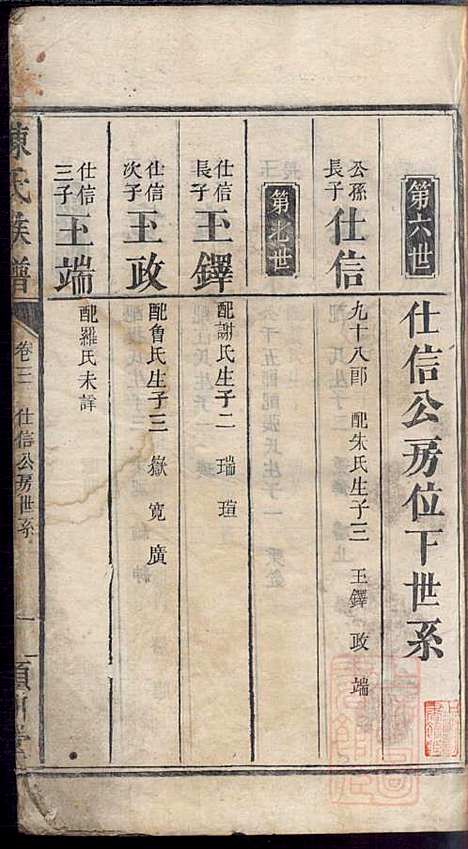 第六世
仕信公房位下世系
公孫長子 仕信 九十八郎 配朱氏生子三 王鐸 政 端
第七世
仕信長子 王鐸 配謝氏生子二 瑞 瑄
仕信次子 王政 配魯氏生子三 嶽 寛 廣
仕信三子 王端 配羅氏未詳
陳氏族譜 卷三 仕信公房世系 一